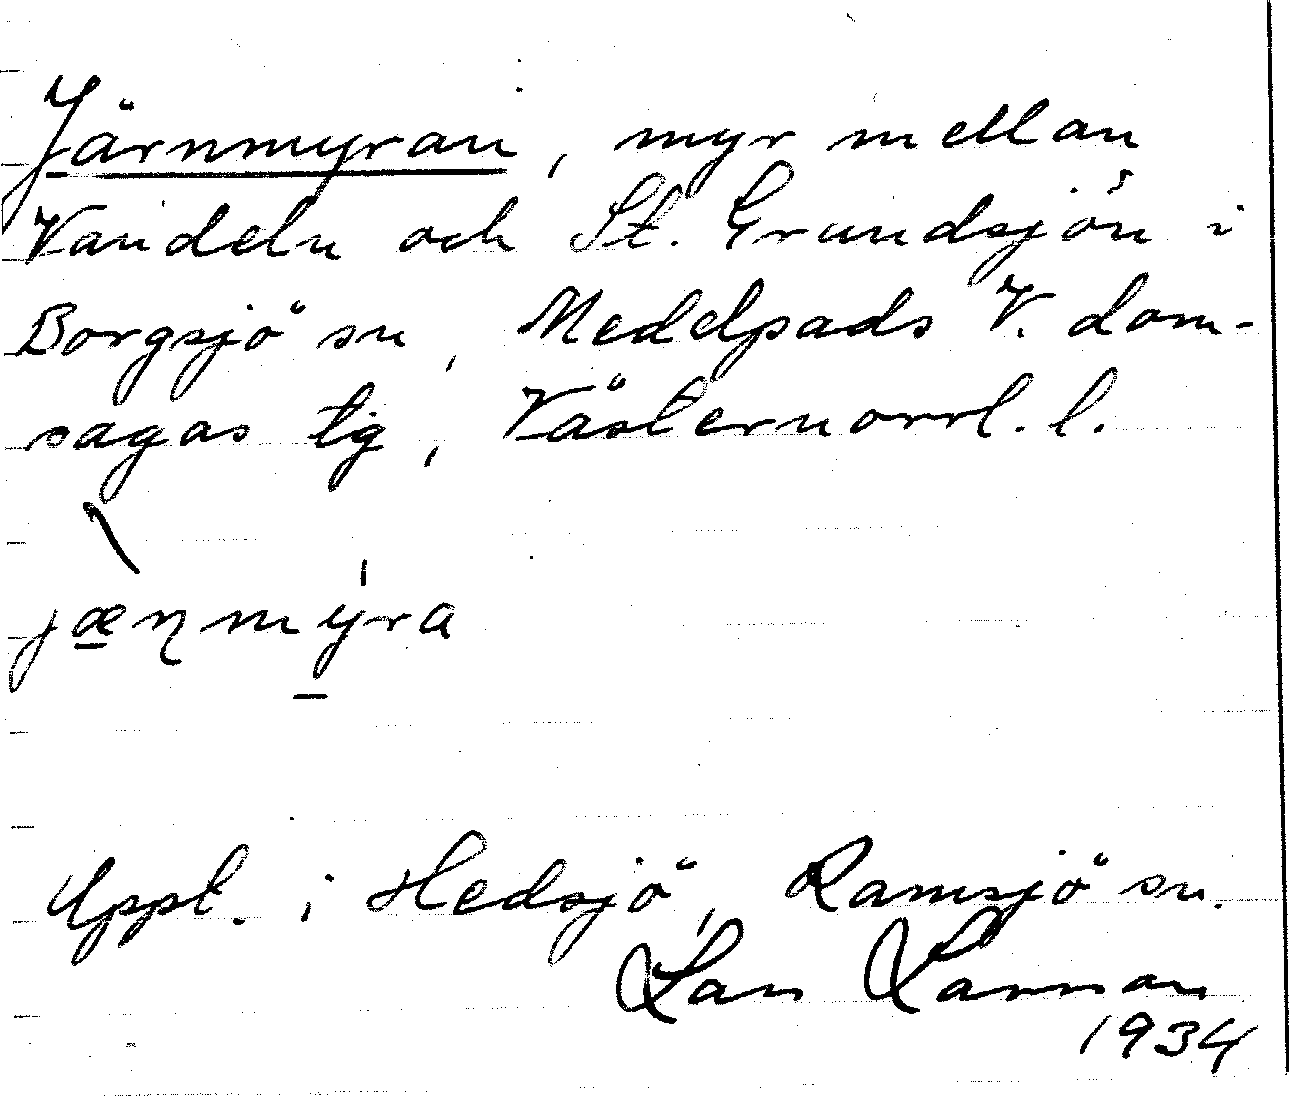 Järnmyran, myr mellan
Vandeln och St. Grundsjön i
Borgsjö sn, Medelpads V. dom-
sagas tg, Västernorrl. l.
jænmyra
Uppt. i Hedsjö, Ramsjö sn.
1934